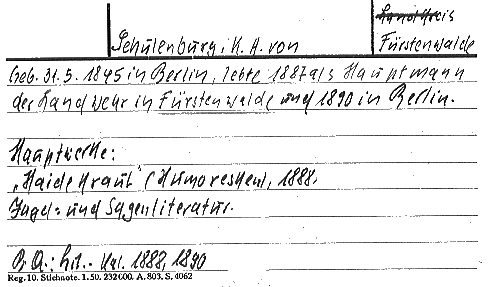 Landkreis
Schulenburg, K. A. von
Fürstenwalde
Geb. 31.5. 1845 in Berlin, lebte 1887 als Hauptmann
der Landwehr in Fürstenwalde und 1890 in Berlin.
Hauptwerke:
„Haidekraut" (Humoresken), 1888.
Jagd- und Sagenliteratur.
Lit. - Kal. 1888, 1890
Reg. 10. Stichnote. 1. 50. 232000. A. 803. S. 4062